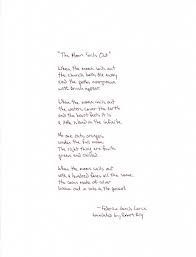 "The Moon Sails Out"
When the moon sails out
the church bells die away
and the paths overgrown
with brush appear.
When the moon sails out
the waters cover the earth
and the heart feels it is
a little island in the infinite.
No one eats oranges
under the full moon.
The right things are fruits
green and chilled.
When the moon sails out
with a hundred faces all the same,
the coins made of silver
break out in sobs in the pocket.
– Federico García Lorca
translated by Robert Bly